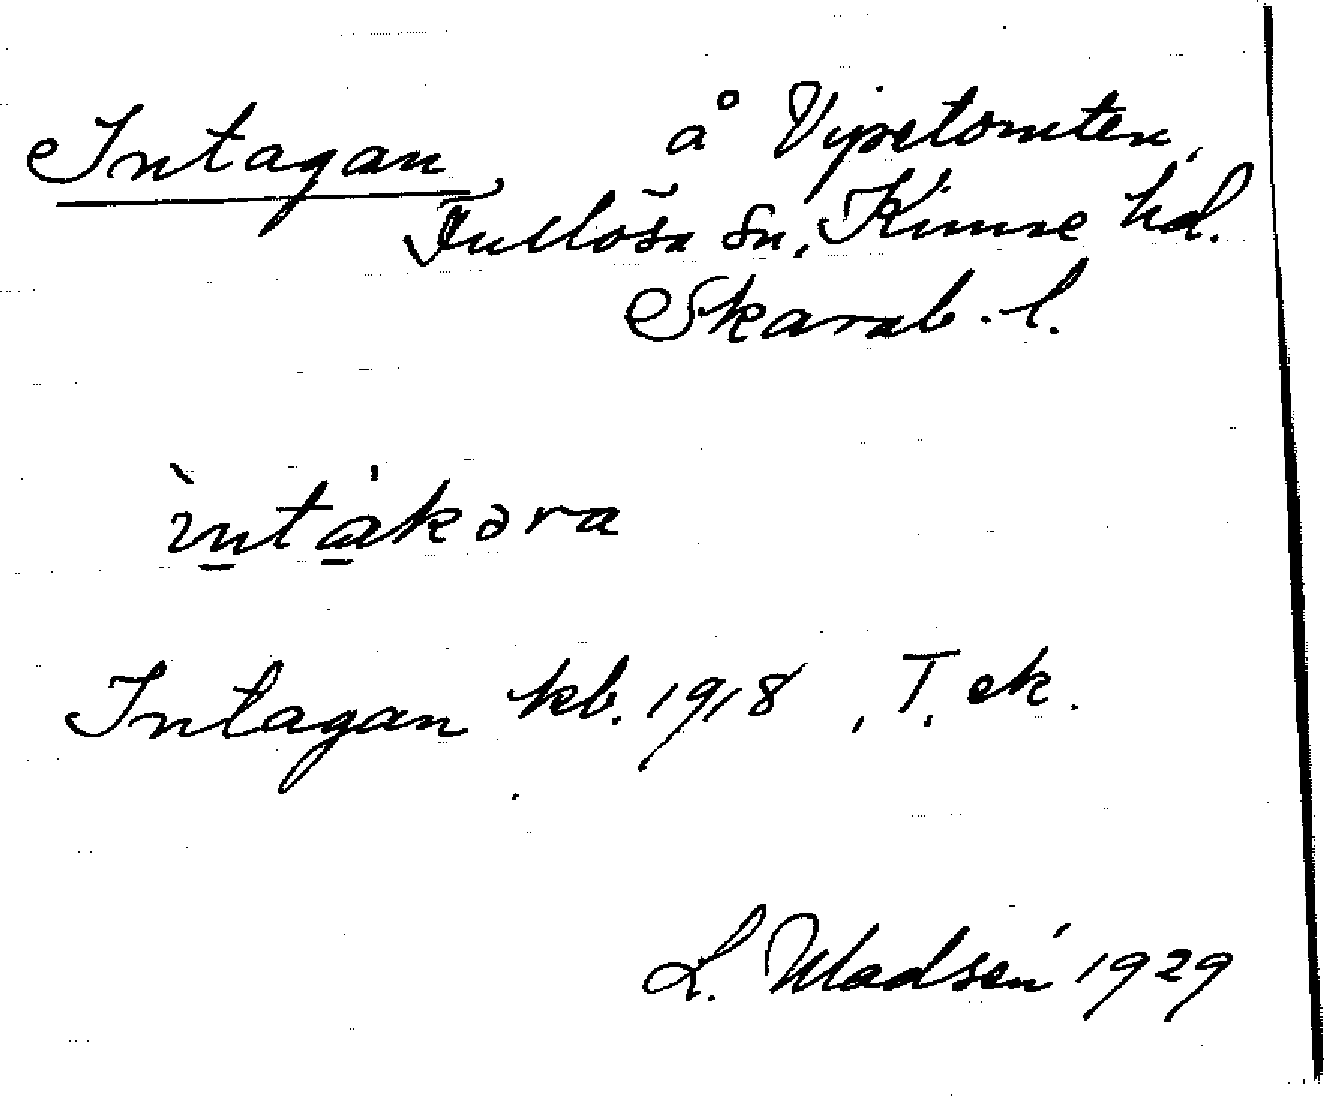 Intagan, å Vipetomten,
Fullösa sn, Kinne hd.
Skarab. l.
ìntákəra
Intagan kb. 1918, T. ek.
L. Madsén 1929